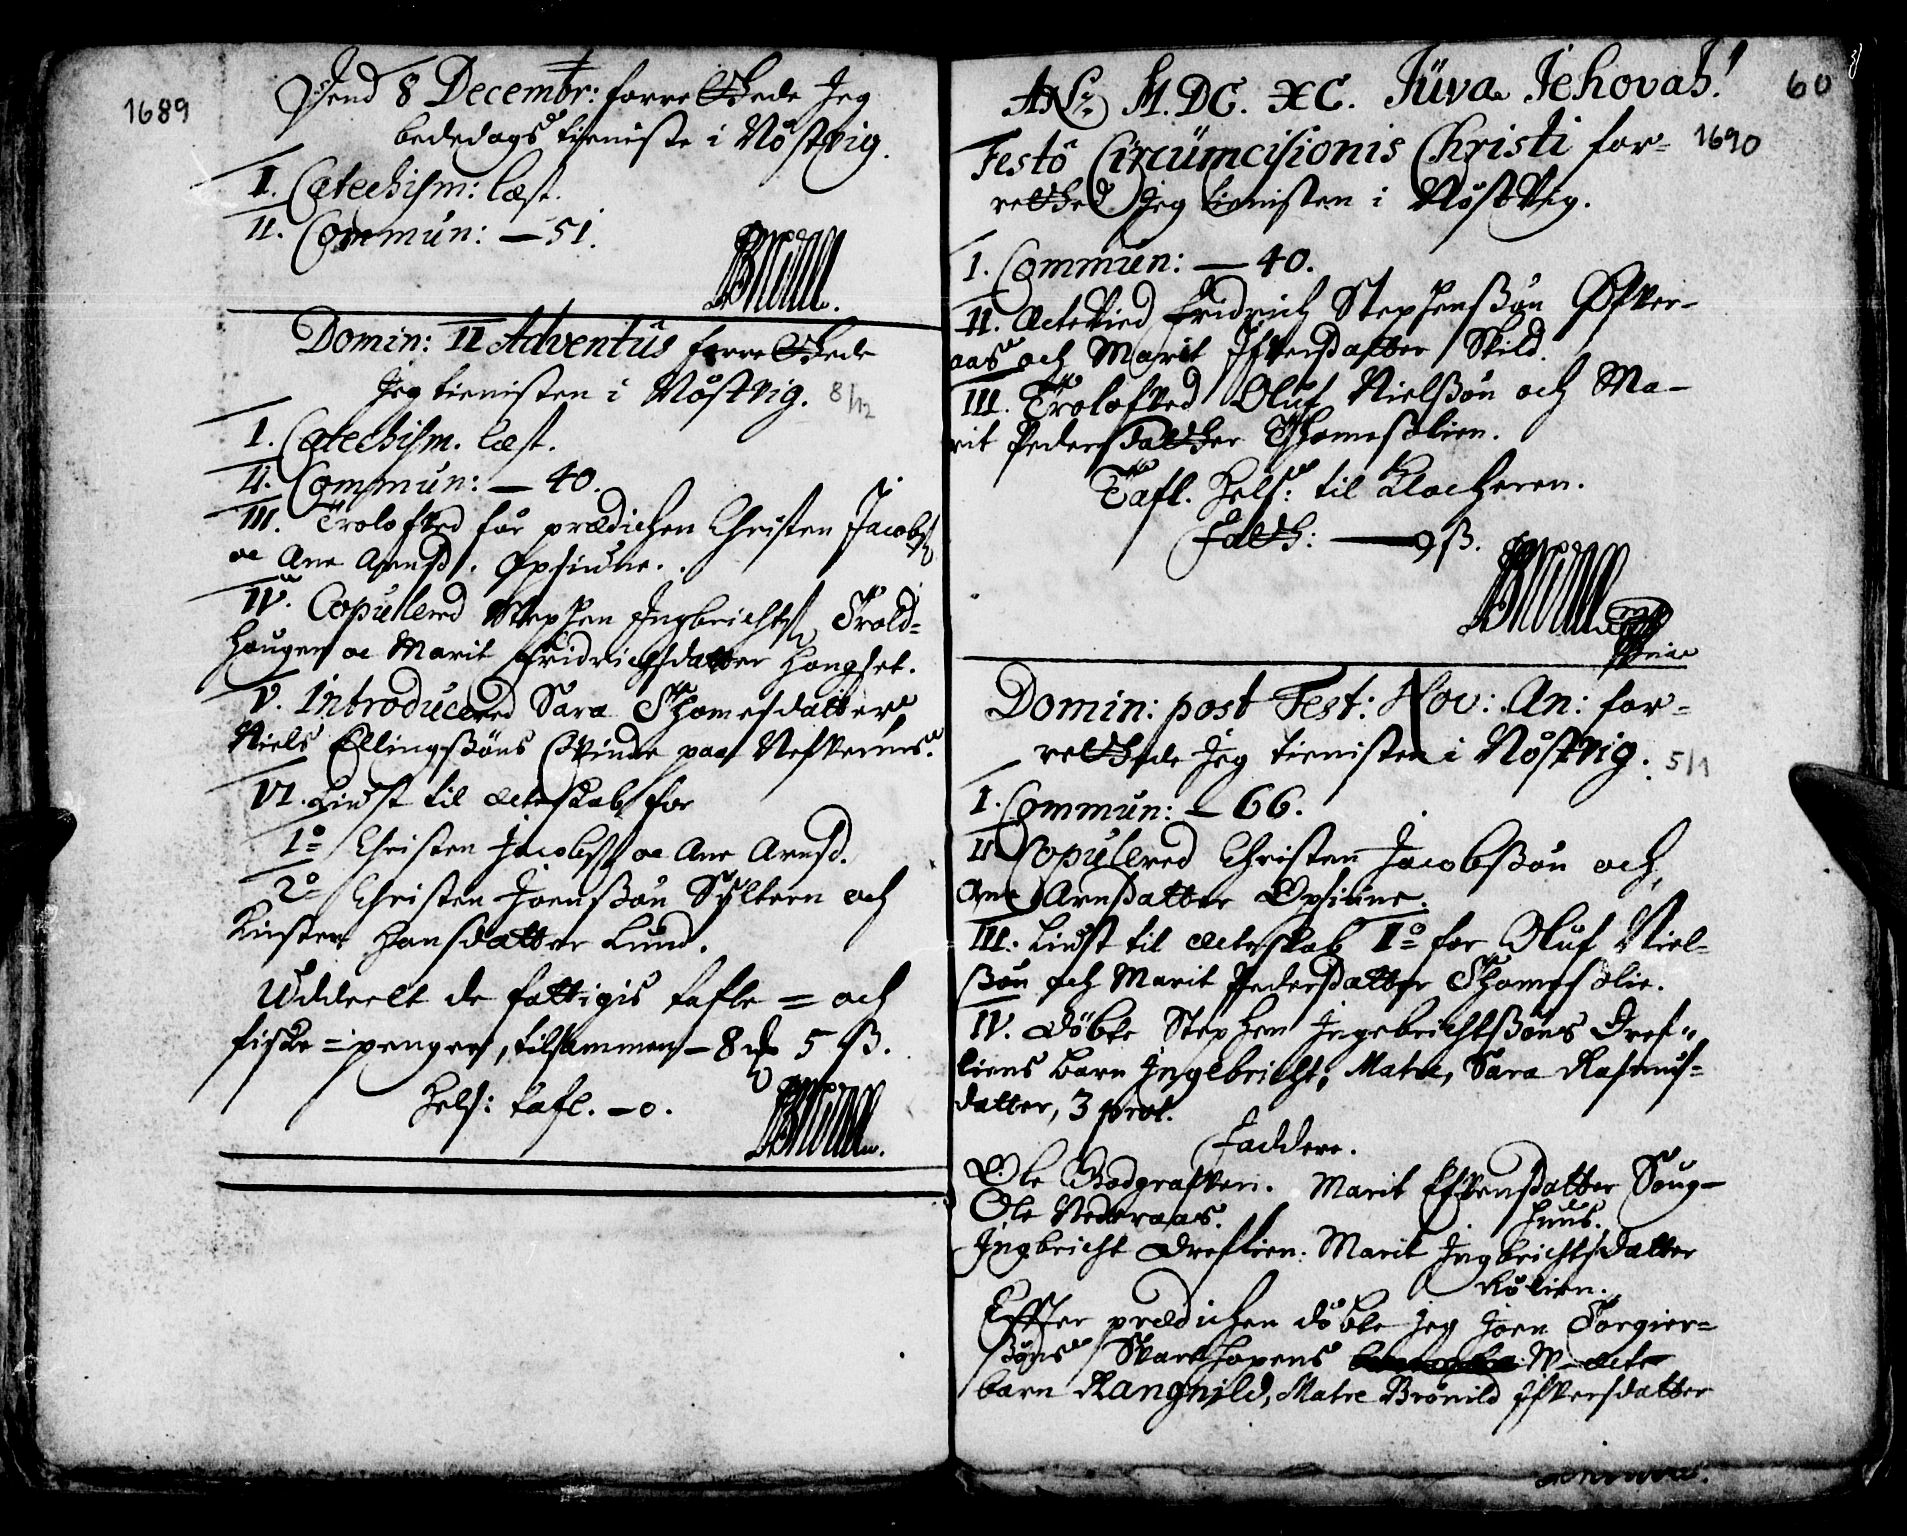 1689
Dend 8 Decembr: forrettede Jeg
bededags tienniste i Nöstvig.
I. Catechism: læst.
II. Commun: — 51.
Domin: II Adventûs forrettede
Jeg tienisten i Nöstvig. 8/12
I. Catechism. læst.
II. Commun: — 40.
III. Trolofved för prædichen Christen Jacobs
oc Ane Arnsd.
IV. Copulered Stephen Ingbrichts Trold-
haugen oc Marit Fridrichsdatter Hongset.
V. Introducered Sara Thomesdatter,
Niels Ellingßöns Qvinde paa
VI. Liust til ecteskab for
1o Christen Jacobs oc Ane Arnsd.
2o Christen Joensßön Syltern och
Kirsten Hansdatter Lund.
Uddeelt de fattigis tafle = och
fiske = penger, tilsammen — 8 5 ß.
Hels: tafl. — 0.
60
Ao M. DC. XC. Jüva Jehovah!
1690
Festô Circumcisionis Christi for-
retted Jeg tienisten i Nöstvig.
I. Commun: — 40.
II. Ectevied Fridrich Stephensßön Öfver-
aas och Marit Ifversdatter Skild.
III. Trolofved Oluf Nielsßön och Ma-
rit Pedersdatter Thomeslien.
Tafl. Hels: til Klocheren.
Fatt: — 9 ß.
Domin: post Fest: Nov: An: for-
rettede Jeg tienisten i Nöstvig. 5/1
I. Commun: — 66.
II. Copulered Christen Jacobsßön och
Ane Arnsdatter
III. Liust til ecteskab 1o for Oluf Niel-
ßön och Marit Pedersdatter Thomeslie.
IV. döbte Stephen Ingebrichtsßöns Dref-
liens barn Ingebricht, Matre, Sara Rasmus-
datter, 3 prot.
Faddere.
Ole Marit Efvensdatter Soug-
Ole Nederaas. huus.
Ingbricht Dreflien. Marit Ingbrichtsdatter
Rölien.
Effter prædichen döbte Jeg Joen Torgier-
ßöns Skarethopens W-ecte
barn Rangnild, Matre Brönild Ifversdatter